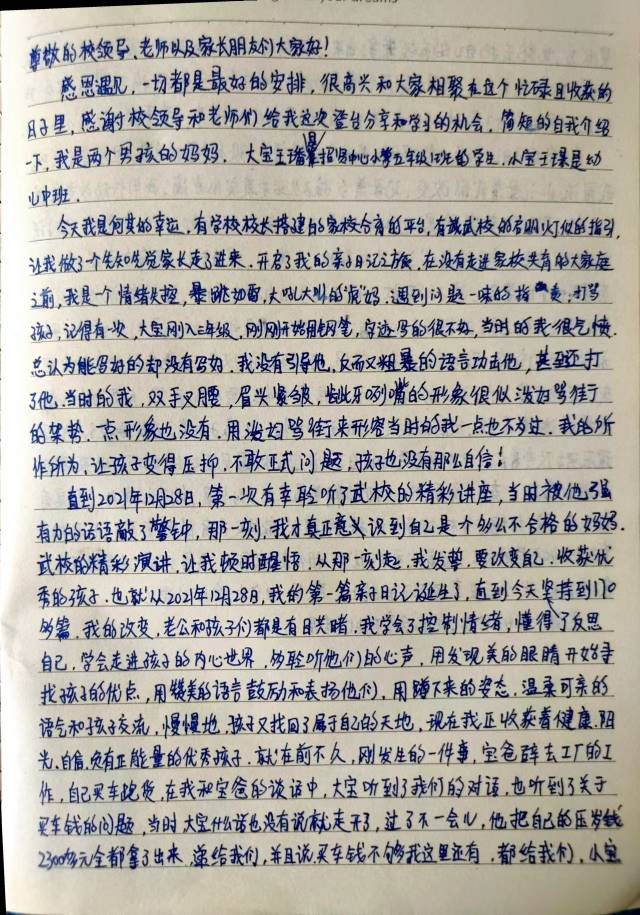 your dreams
尊敬的校领导、老师以及家长朋友们大家好!
感恩遇见,一切都是最好的安排,很高兴和大家相聚在这个忙碌且收获的
日子里,感谢校领导和老师们给我这次登台分享和学习的机会,简短的自我介绍
一下,我是两个男孩的妈妈.大宝王 招贤中心小学五年级 班的学生.小宝王 是幼
儿中班.
今天我是何其的幸运,有学校校长搭建的家校合育的平台,有 武校的启明灯似的指引,
让我做了一个先知先觉家长走了进来.开启了我的亲子日记之旅,在没有走进家校共育的大家庭
之前,我是一个情绪失控,暴跳如雷,大吼大叫的"虎"妈,遇到问题一味的指责,打骂
孩子,记得有一次,大宝刚入三年级,刚刚开始用钢笔,字迹写的很不好,当时的我很气愤.
总认为能写好的却没有写好.我没有引导他,反而又粗暴的语言功击他,甚至还打
了他.当时的我,双手叉腰,眉头紧皱,龇牙咧嘴的形象很似泼妇骂街
的架势.一点形象也没有.用泼妇骂街来形容当时的我一点也不为过.我的所
作所为,让孩子变得压抑,不敢正式问题,孩子也没有那么自信!
直到2021年12月28日,第一次有幸聆听了武校的精彩讲座,当时被他强
有力的话语敲了警钟,那一刻,我才真正意义识到自己是个多么不合格的妈妈.
武校的精彩演讲.让我顿时醒悟.从那一刻起,我发誓.要改变自己.收获优
秀的孩子.也就从2021年12月28日,我的第一篇亲子日记诞生了,直到今天坚持到170
多篇.我的改变,老公和孩子们都是有目共睹,我学会了控制情绪,懂得了反思
自己,学会走进孩子的内心世界.多聆听他们的心声,用发现美的眼睛开始寻
找孩子的优点,用赞美的语言鼓励和表扬他们,用蹲下来的姿态.温柔可亲的
语气和孩子交流,慢慢地.孩子又找回了属于自己的天地,现在我正收获着健康.阳
光.自信.负有正能量的优秀孩子.就在前不久,刚发生的一件事,宝爸辞去工厂的工
作,自己买车跑货,在我和宝爸的谈话中,大宝听到了我们的对话,也听到了关于
买车钱的问题,当时大宝什么话也没有说就走开了,过了不一会儿,他把自己的压岁钱
2300多元全都拿了出来.递给我们,并且说买车钱不够我这里还有,都给我们,小宝